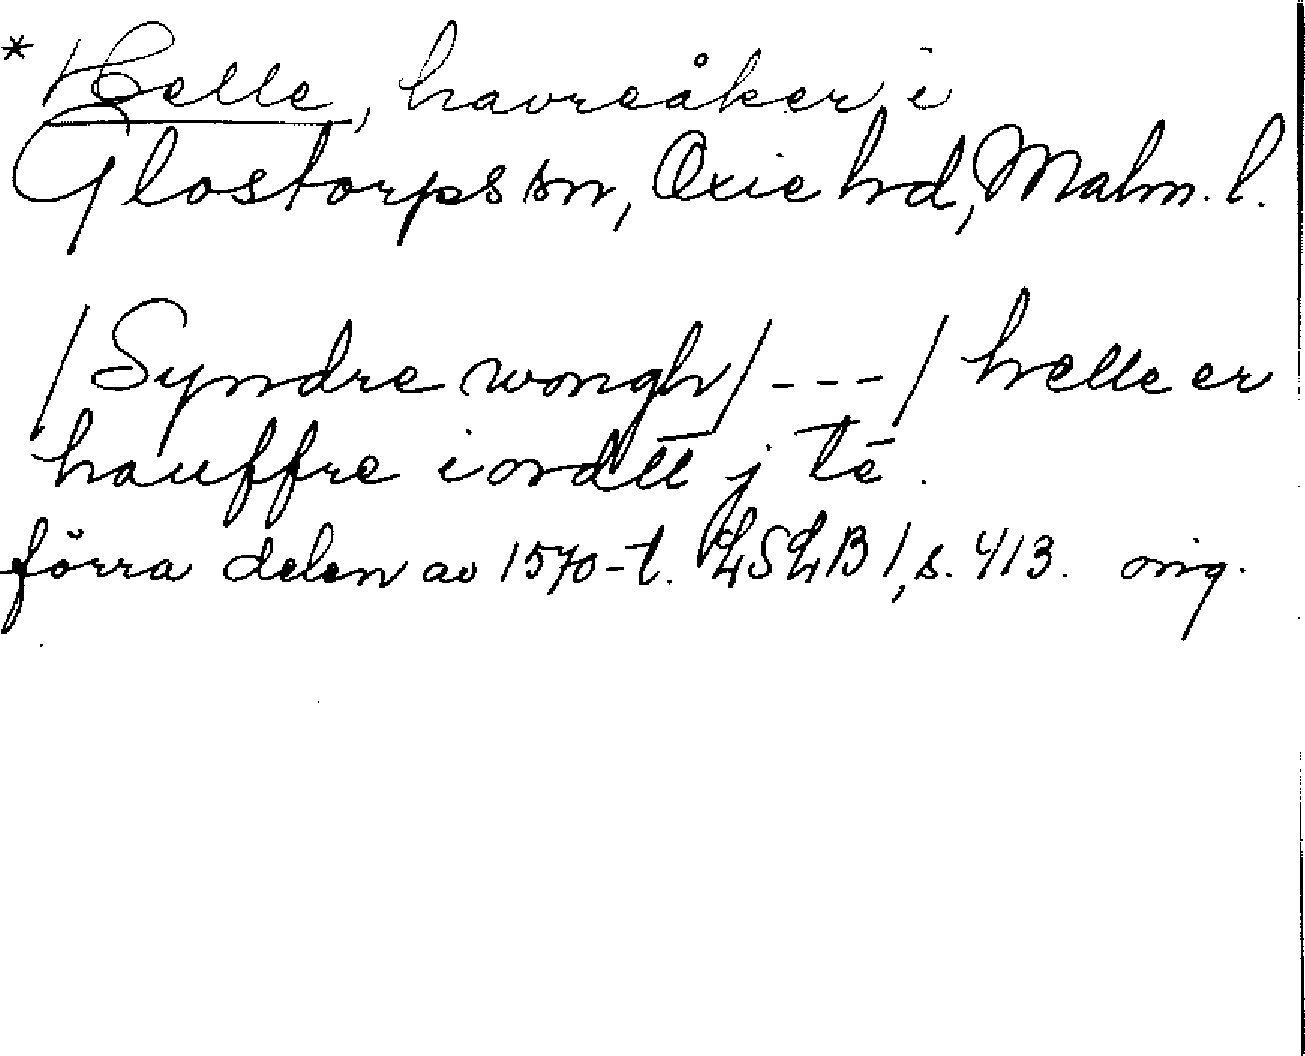 *Helle, havreåker i
Glostorps sn, Oxie hd, Malm. l.
/Syndre wongh/ --- / helle er
hauffre iord j tē.
förra delen av 1570-t. LSLB 1, s. 413. orig.